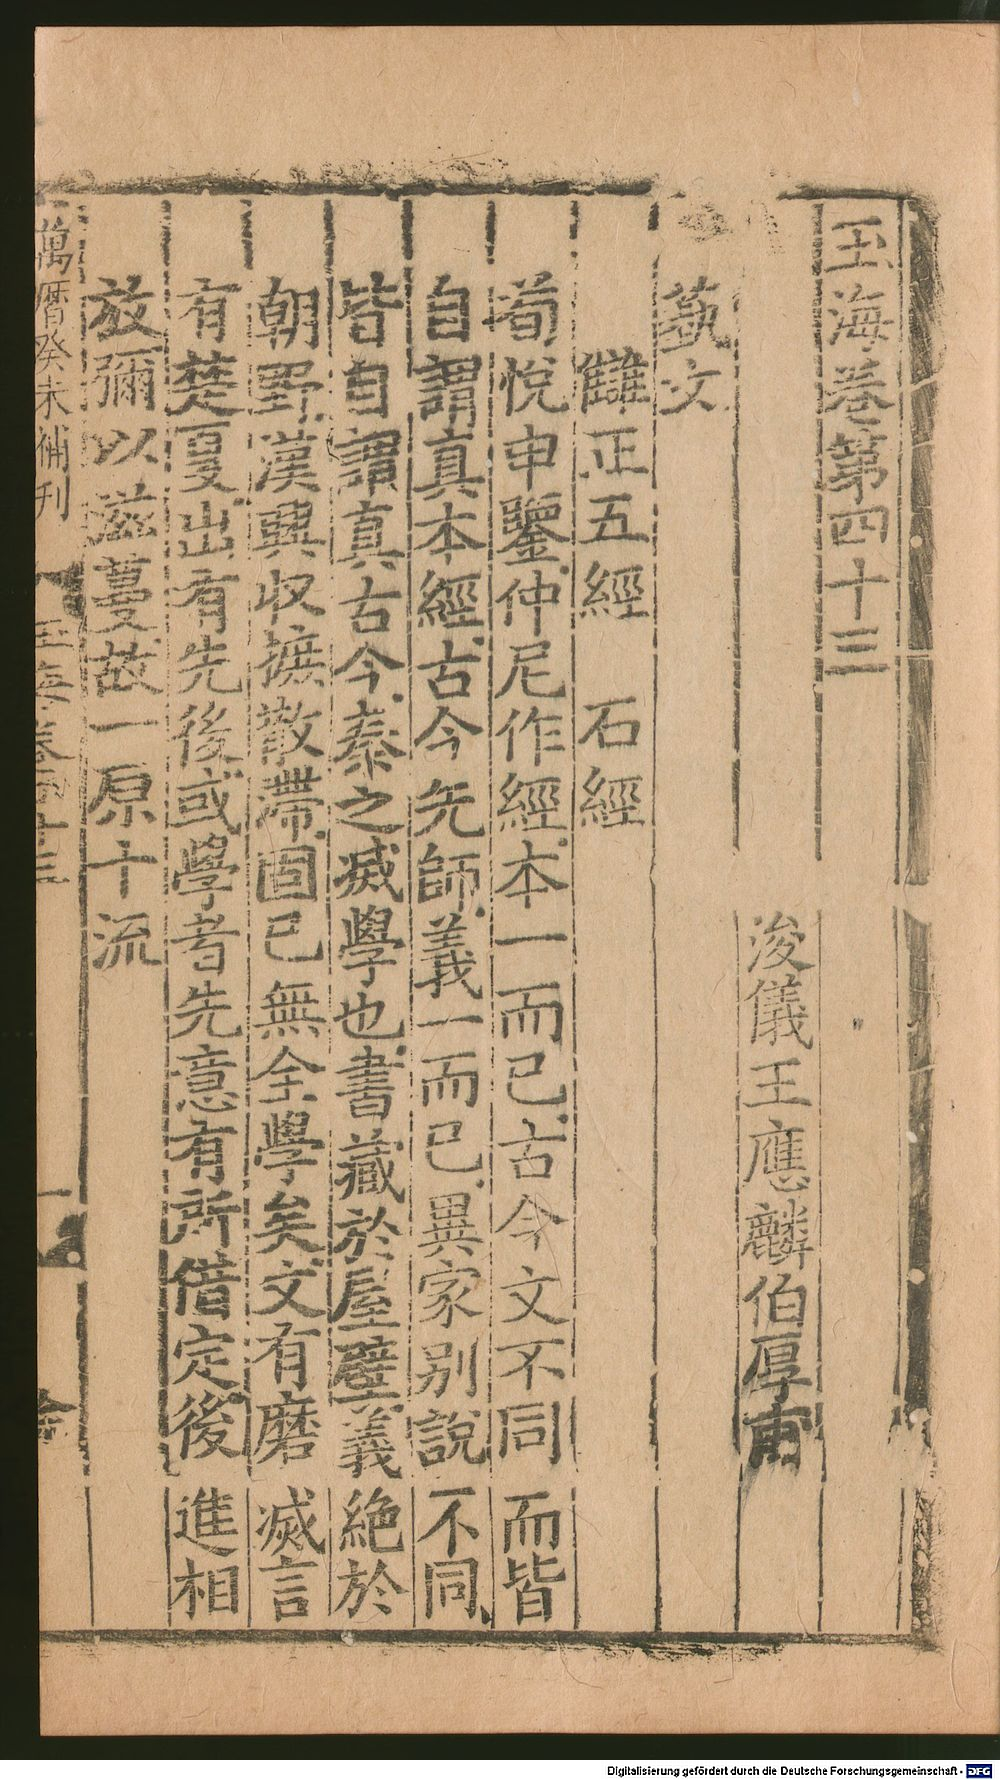 玉海卷第四十三
浚儀王應麟伯厚甫
蓺文
讎正五經　石經
荀悅申鑒仲尼作經本一而已古今文不同而皆
自謂真本經古今先師義一而已異家别說不同
皆自謂真古今秦之滅學也書藏於屋壁義絶於
朝野漢興收摭散滯固已無全學矣文有磨滅言
有楚夏出有先後或學者先意有所借定後進相
放彌以滋蔓故一原十流
萬曆癸未補刊
玉海卷四十三
一
Digitalisierung gefördert durch die Deutsche Forschungsgemeinschaft - DFG